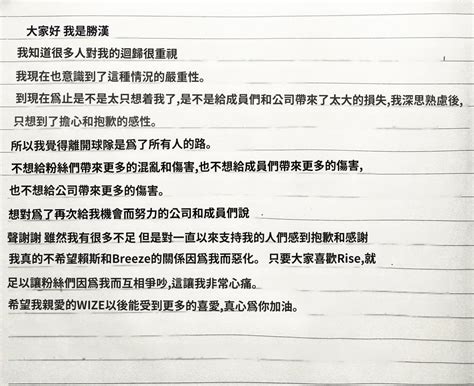 大家好 我是勝漢
我知道很多人對我的迴歸很重視
我現在也意識到了這種情況的嚴重性。
到現在爲止是不是太只想着我了,是不是給成員們和公司帶來了太大的損失,我深思熟慮後,
只想到了擔心和抱歉的感性。
所以我覺得離開球隊是爲了所有人的路。
不想給粉絲們帶來更多的混亂和傷害,也不想給成員們帶來更多的傷害,
也不想給公司帶來更多的傷害。
想對爲了再次給我機會而努力的公司和成員們說
聲謝謝 雖然我有很多不足 但是對一直以來支持我的人們感到抱歉和感謝
我真的不希望賴斯和Breeze的關係因爲我而惡化。 只要大家喜歡Rise,就
足以讓粉絲們因爲我而互相爭吵,這讓我非常心痛。
希望我親愛的WIZE以後能受到更多的喜愛,真心爲你加油。